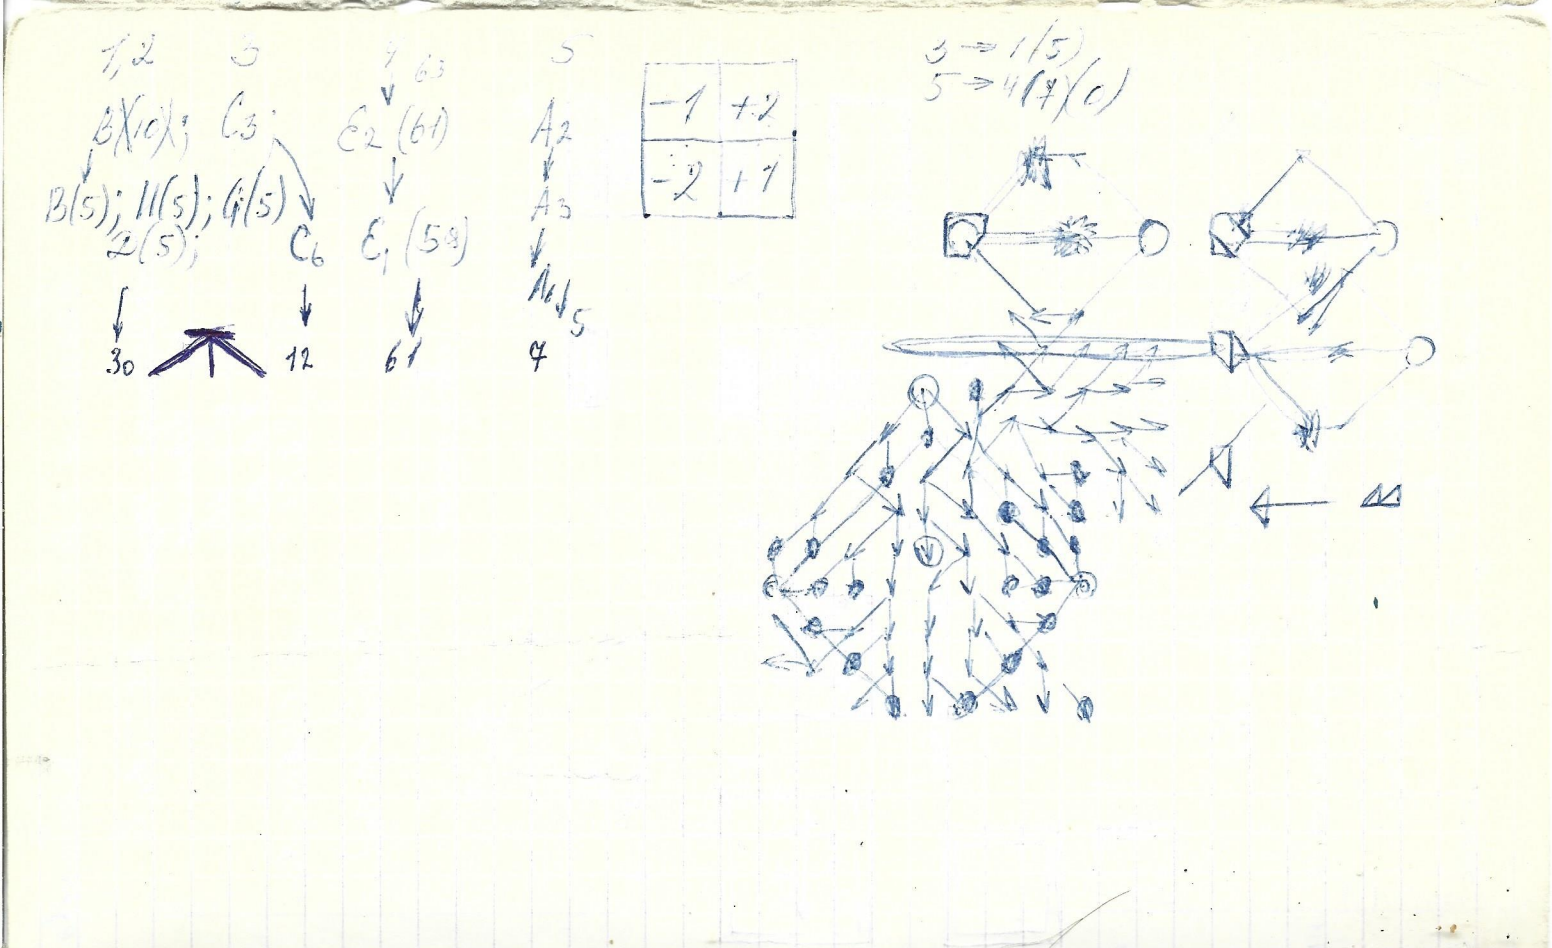 1,2 3 4 63 5
B)(10); C3; E2 (61) A2
B(5); 11(5); 4(5) A3
2(5); C6 E1 (59)
5
30 12 61 7
-1 +2
-2 +1
3 → 1(5)
5 → 4(7)(0)